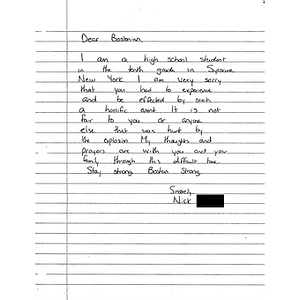 Dear Bostonian,
I am a high school student
in the tenth grade in Syracuse,
New York. I am very sorry
that you had to experience
and be effected by such
a horrific event. It is not
fair to you or anyone
else that was hurt by
the explosion. My thoughts and
prayers are with you and your
family through this difficult time.
Stay strong. Boston Strong.
Sincerely,
Nick